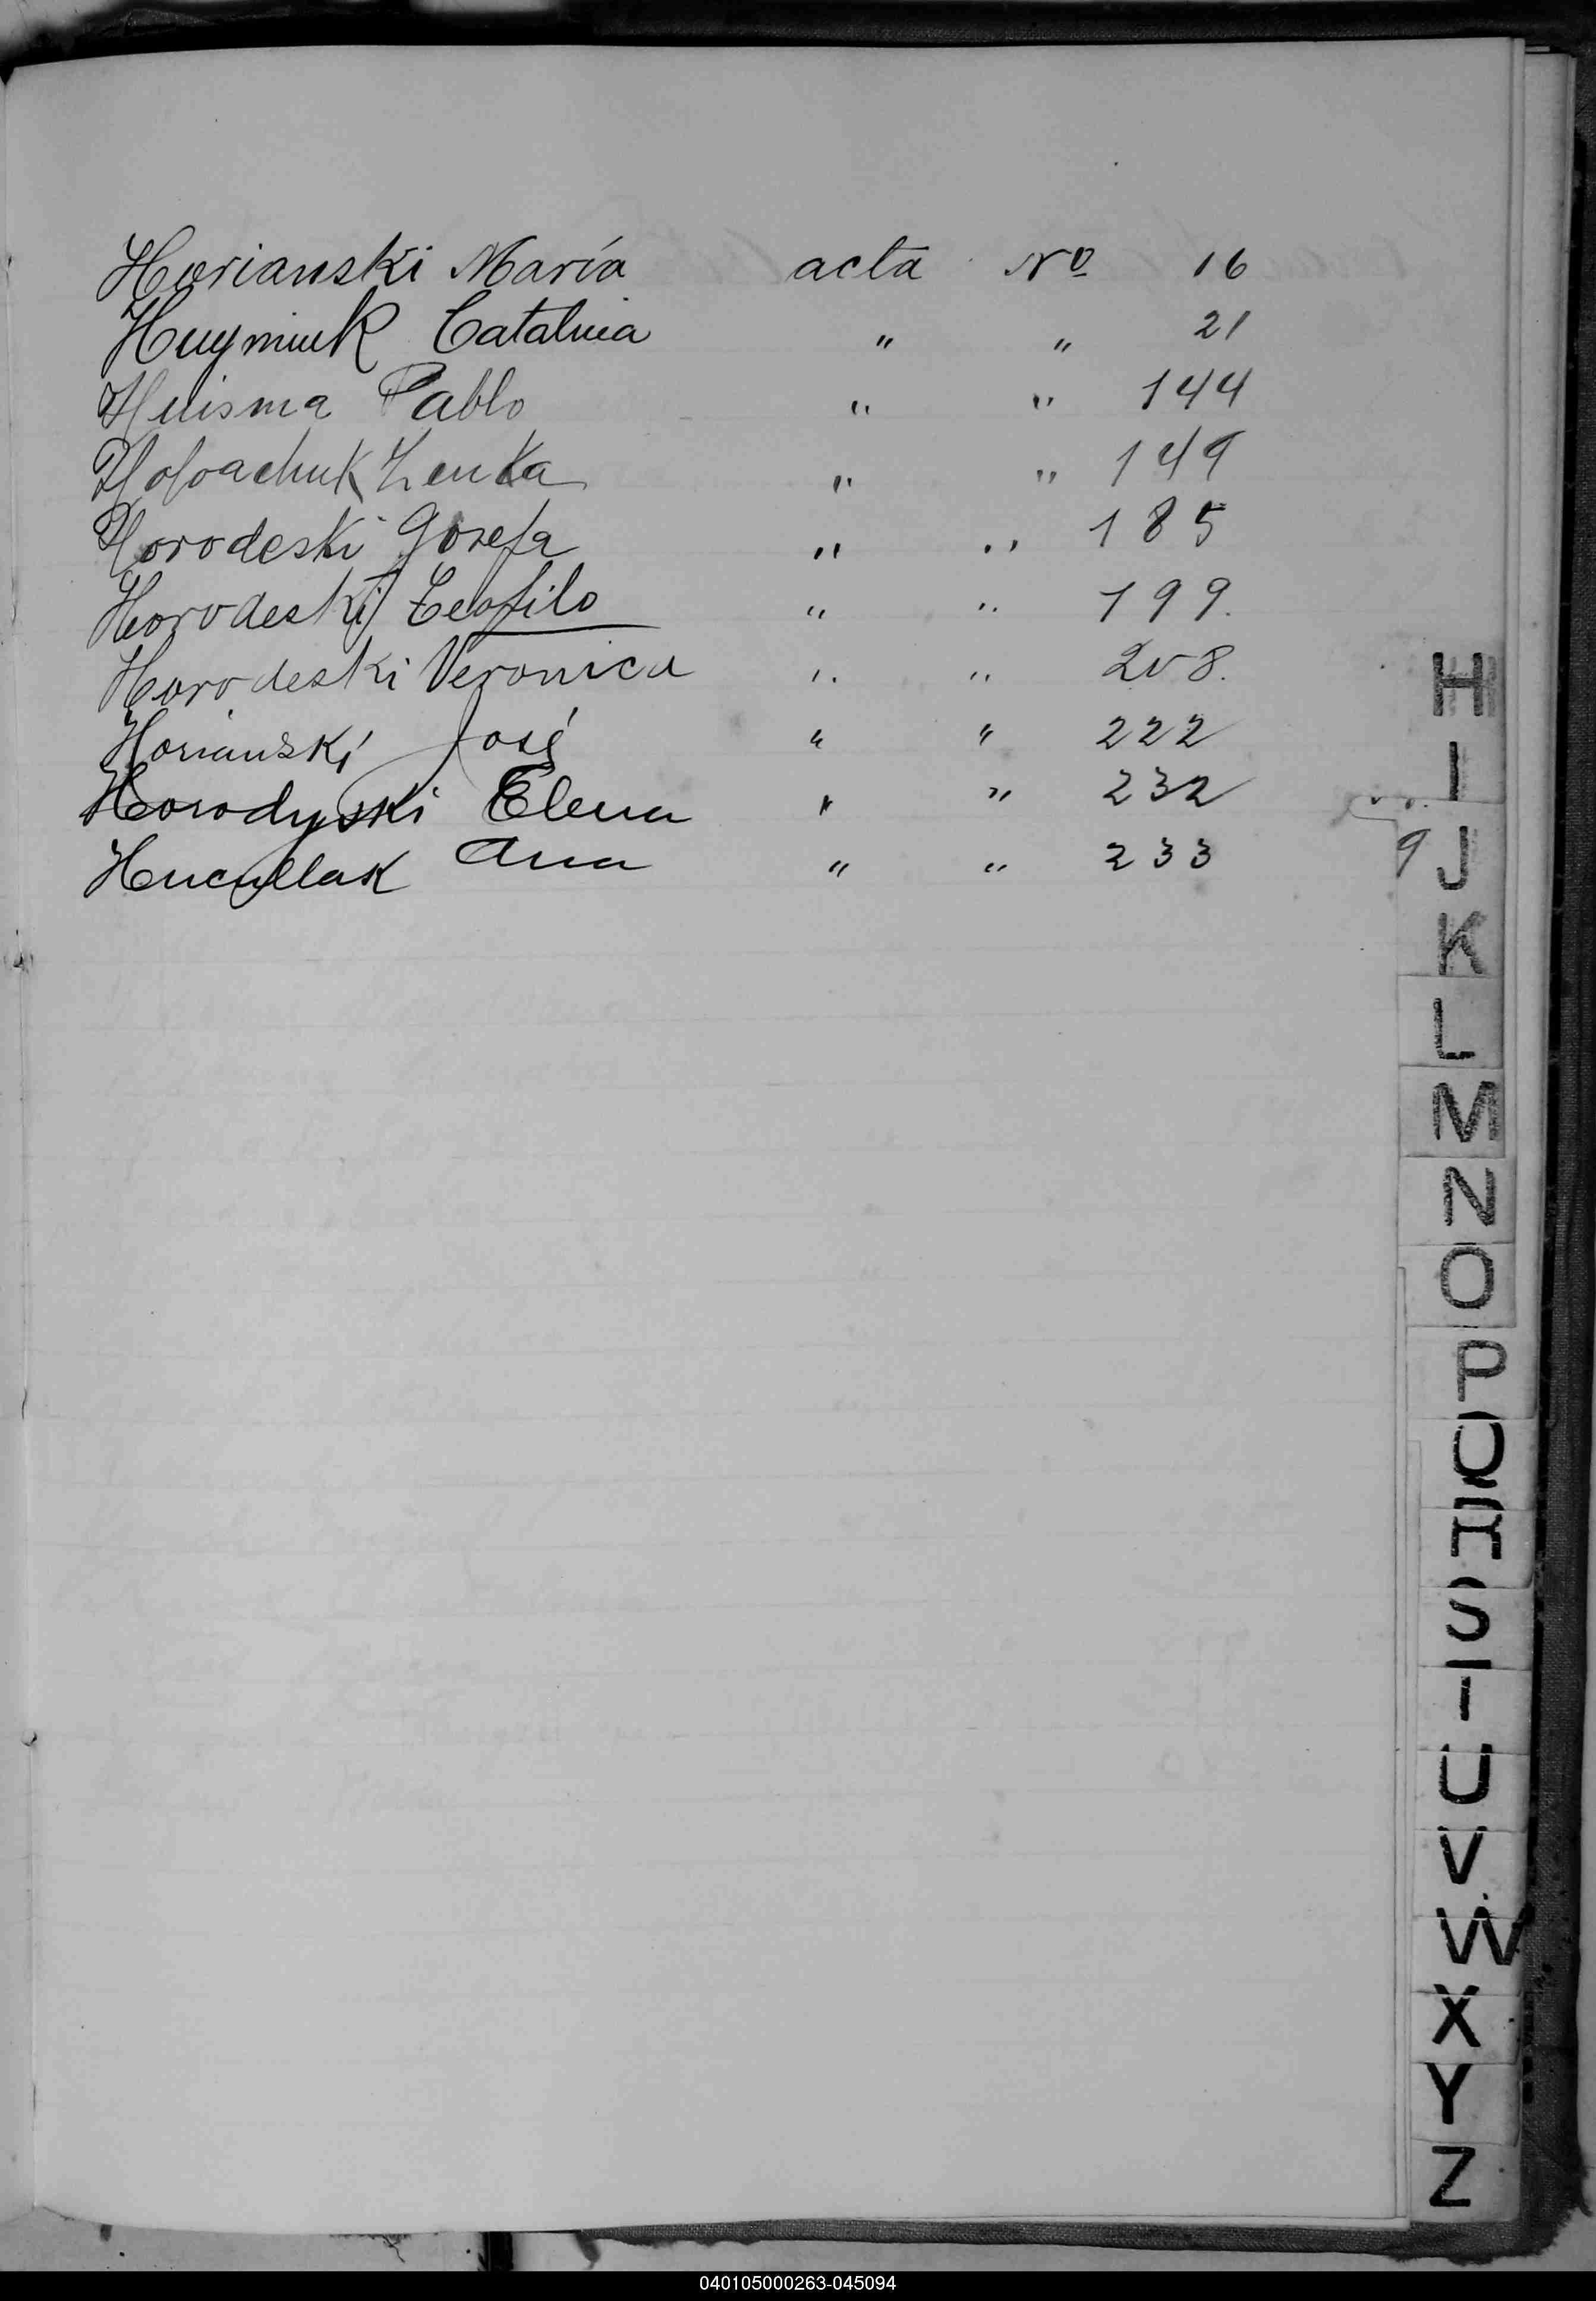 Horianski María acta Nº 16
Huymiuk Catalina " " 21
Huisma Pablo " " 144
Holoachuk Zenka " " 149
Horodeski Josefa " " 185
Horodeski Teofilo " " 199.
Horodeski Veronica " " 208.
Horianski José " " 222
Horodyski Elena " " 232
Hucullak Ana " " 233
H
I
9 J
K
L
M
N
O
P
Q
R
S
T
U
V
W
X
Y
Z
040105000263-045094